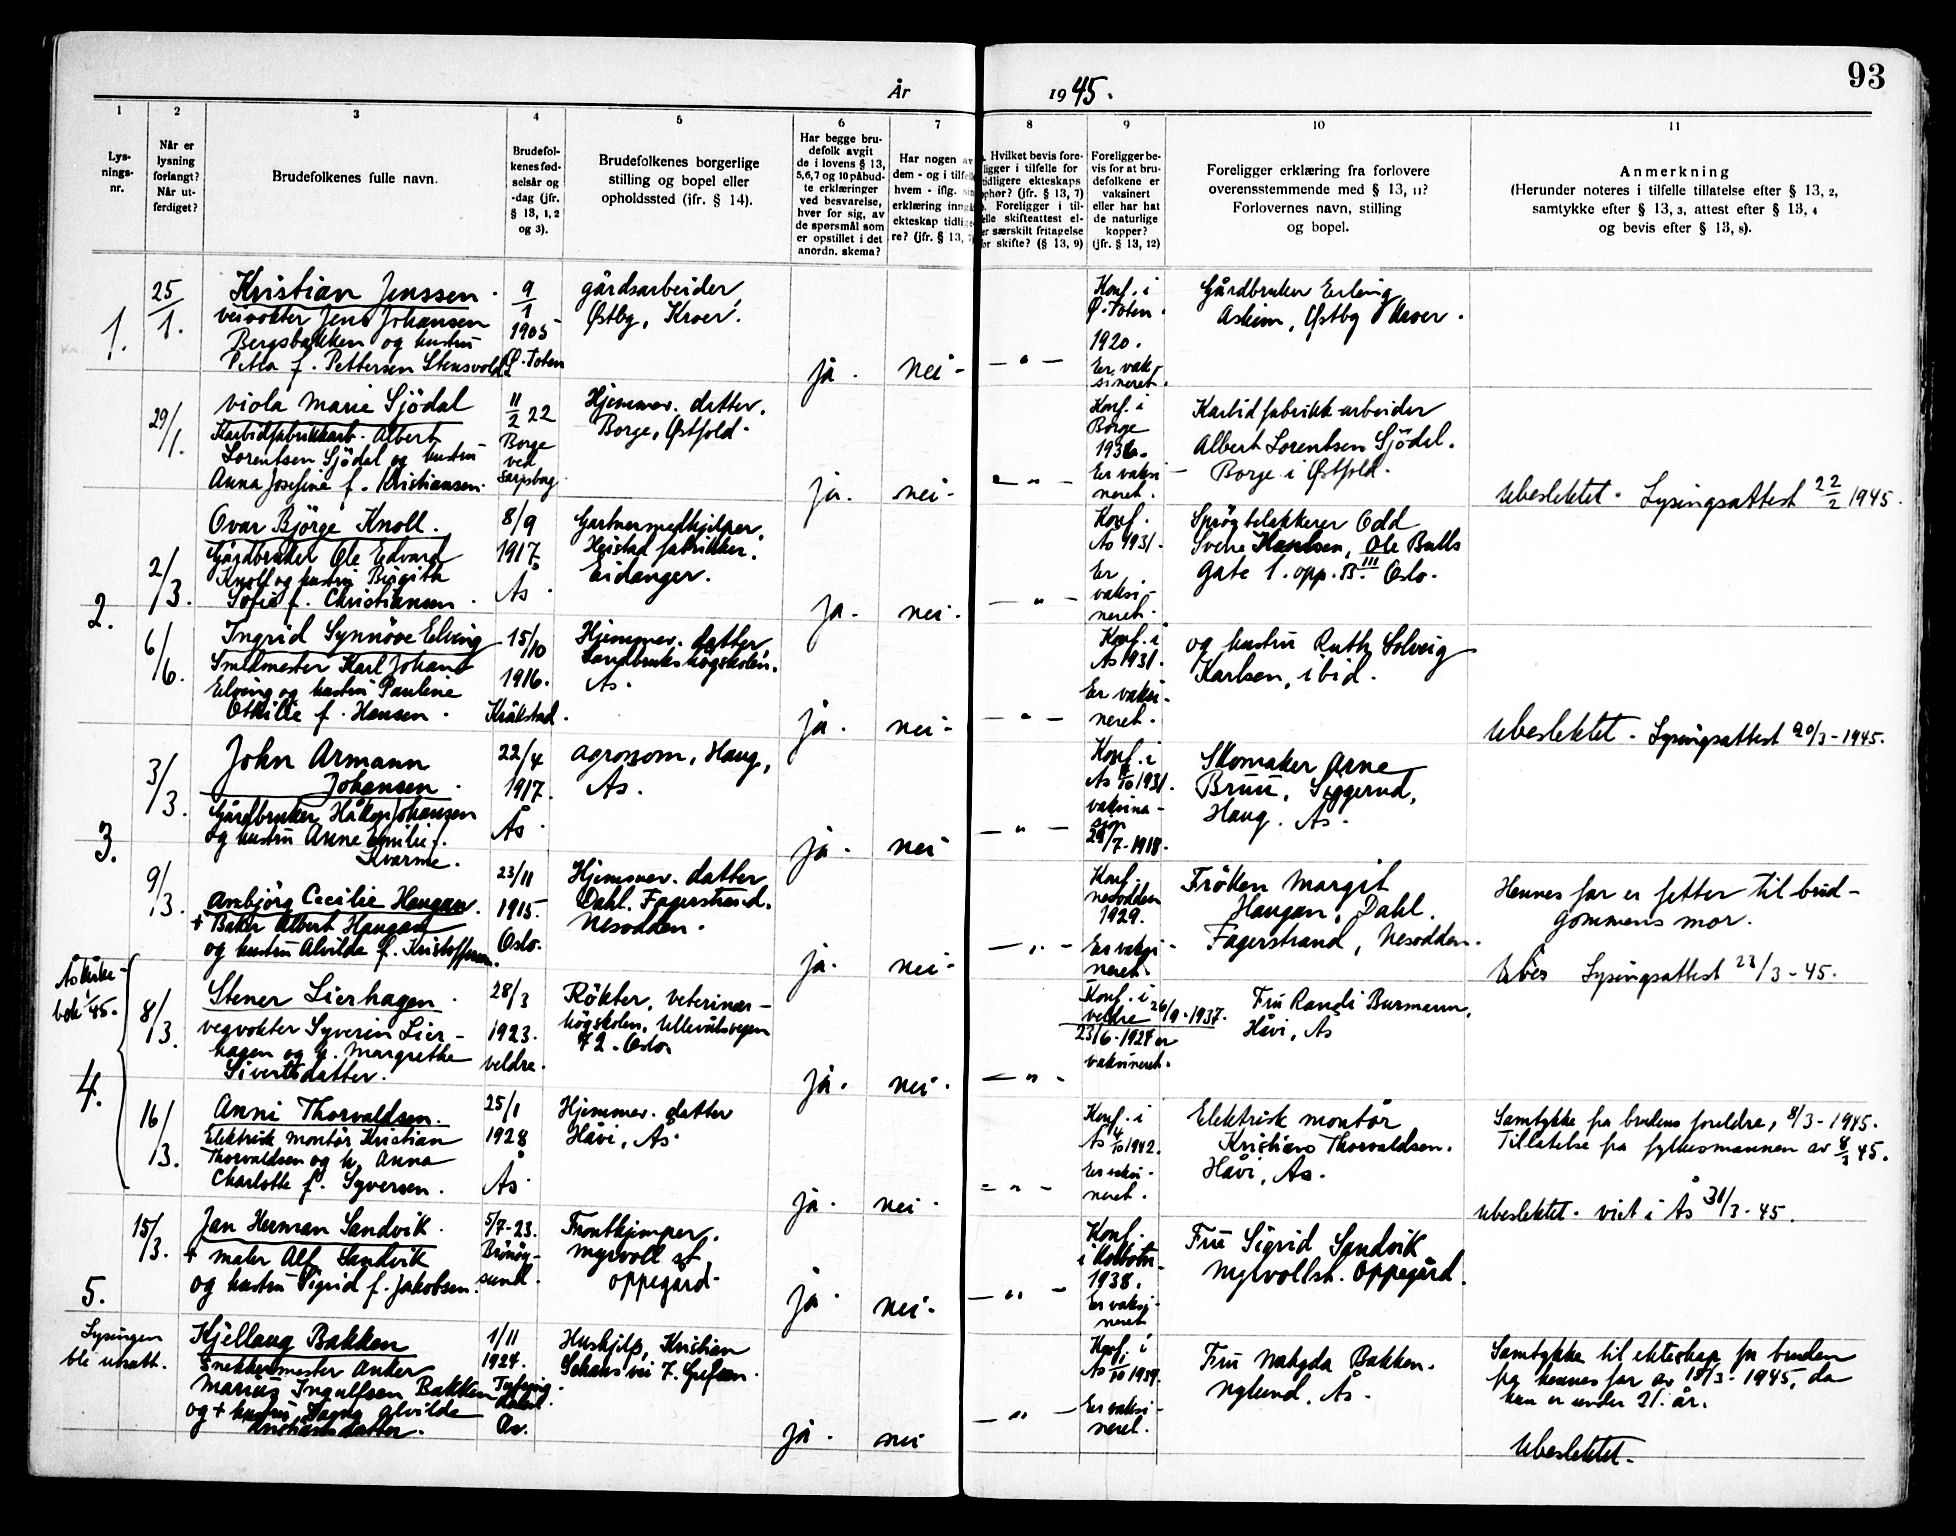 93
År 1945.
1 2 3 4 5 6 7 8 9 10 11
Lys-
nings-
nr.
Når er
lysning
forlangt?
Når ut-
ferdiget?
Brudefolkenes fulle navn.
Brudefol-
kenes fød-
selsår og
-dag (jfr.
§ 13, 1, 2
og 3).
Brudefolkenes borgerlige
stilling og bopel eller
opholdssted (ifr. § 14).
Har begge bru-
defolk avgit
de i lovens § 13,
5,6,7 og 10 påbud-
te erklæringer
ved besvarelse,
hver for sig, av
de spørsmål som
er opstillet i det
anordn. skema?
Har nogen av
dem - og i tilfelle
hvem - iflg. sin
erklæring inngått
ekteskap tidlige-
re? (jfr. § 13, 7)
Hvilket bevis fore-
ligger i tilfelle for
tidligere ekteskaps
ophør? (jfr. § 13, 7)
Foreligger i til-
felle skifteattest el-
er særskilt fritagelse
for skifte? (§ 13, 9)
Foreligger be-
vis for at bru-
defolkene er
vaksinert
eller har hat
de naturlige
kopper?
(jfr. § 13, 12)
Foreligger erklæring fra forlovere
overensstemmende med § 13, 11?
Forlovernes navn, stilling
og bopel.
Anmerkning
(Herunder noteres i tilfelle tillatelse efter § 13, 2,
samtykke efter § 13, 3, attest efter § 13, 4
og bevis efter § 13, 8).
1.
25/1.
Kristian Jenssen.
veivokter Jens Johansen
Bergsbakken og hustru
Petra f. Pettersen Stensvold
9/1
1905
Ø. Toten
gårdsarbeider,
Østby, Kroer.
ja.
nei -
- " -
Konf. i
Ø. Toten.
1920.
Er vak-
sineret.
Gårdbruker Erling
Askim, Østby Kroer.
29/1.
Viola Marie Sjödal
Karbidfabrikkarb. Albert
Lorentsen Sjödal og hustru
Anna Josefine f. Kristiansen.
11/2 22
Borge
ved
Sarpsborg
Hjemmev. datter.
Borge, Østfold.
ja.
nei -
- " -
Konf. i
Borge
1936.
Er vaksi-
neret.
Karbidfabrikk-arbeider
Albert Lorentsen Sjödal.
Borge i Østfold.
Ubeslektet. Lysingsattest 22/2 1945.
2.
2/3.
Ovar Björge Knoll.
Gårdbruker Ole Edvard
Knoll og hustru Birgith
Sofie f. Christiansen.
8/9
1917.
Ås.
Gartnermedhjelper,
Heistad fabrikker.
Eidanger.
ja.
nei.
- " -
Konf.
Ås 1931.
Er
vaksi-
neret.
Odd
Sverre Karlsen, Ole Bulls
gate 1. opp. B. III Oslo.
6/6.
Ingrid Synnöve Elving
Smedmester Karl Johan
Elving og hustru Pauline
Othilie f. Hansen.
15/10
1916.
Kråkstad.
Hjemmev. datter,
Landbrukshögskolen.
Ås.
ja.
nei -
- " -
Konf. i
Ås 1931.
Er vaksi-
neret.
og hustru Ruth Solveig
Karlsen, ibid.
Ubeslektet - Lysingsattest 20/3 - 1945.
3.
3/3.
John Armann
Johansen.
Gårdbruker Håkon Johansen
og hustru Anne Emilie f.
Kvarme.
22/4
1917.
Ås.
Agronom, Haug,
Ås.
ja.
nei
- " -
Konf. i
Ås 1931.
vaksina-
sjon
/7-1918.
Skomaker Arne
Bruu, Siggerud,
Haug. Ås.
9/3.
Ambjörg Cecilie Haugan.
+ Baker Albert Haugan
og hustru Alvilde f. Kristoffersen.
23/11
1915.
Oslo.
Hjemmev. datter
Dahl. Fagerstrand.
Nesodden.
ja.
nei.
- " -
Konf.
Nesodden
1929.
Er vaksi-
neret.
Fröken Margit
Haugan, Dahl.
Fagerstrand, Nesodden.
Hennes far er fetter til brud-
gommens mor.
Lysingsattest 23/3 - 45.
4.
8/3.
Stener Lierhagen.
vegvokter Syverin Lier-
hagen og h. Margrethe
Sivertsdatter.
28/3
1923.
Veldre.
Rökter, veterinær-
högskolen, Ullevålsvegen
72. Oslo
ja.
nei.
- " -
Konf. i
Veldre 26/9-1937.
23/6-1924 er
vaksineret.
Fru Randi Burmann,
Håvi, Ås
16/3.
Anni Thorvaldsen.
Elektrisk montör Kristian
Thorvaldsen og h. Anna
Charlotte f. Syversen.
25/1
1928
Ås
Hjemmev. datter
Håvi, Ås.
ja.
nei.
- " -
Konf. i
Ås 4/10 1942.
Er vaksi-
neret.
Elektrisk montör
Kristian Thorvaldsen.
Håvi, Ås.
Samtykke fra brudens foreldre, 8/3 - 1945.
Tillatelse fra fylkesmannen av 8/3 45.
Ubeslektet. viet i Ås 31/3 - 45.
5.
Lysingen
ble utsatt.
15/3.
Jan Herman Sandvik.
+ maler Alf Sandvik
og hustru Sigrid f. Jakobsen.
5/7-23.
Brönöy-
sund.
Frontkjemper.
Myrvoll st.
Oppegård.
ja.
nei -
- " -
Konf.
i Kolbotn
1938.
Er vaksi-
neret
Fru Sigrid Sandvik
Myrvollst. Oppegård.
Kjellaug Bakken
Snekkermester Anker
Marius Ingulfsen Bakken
og + hustru Dagny Alvilde
Kristiansdatter.
1/11
1924.
Ås.
Hushjelp, Kristian
Schaus vei 7. Grefsen.
ja.
nei
- " -
Konf. i
Ås 1/10 1939.
Er vaksi-
neret.
Fru Bakken.
Nylund, Ås.
Samtykke til ekteskap fra bruden
fra hennes far av 15/3 - 1945, da
hun er under 21. år.
Ubeslektet.